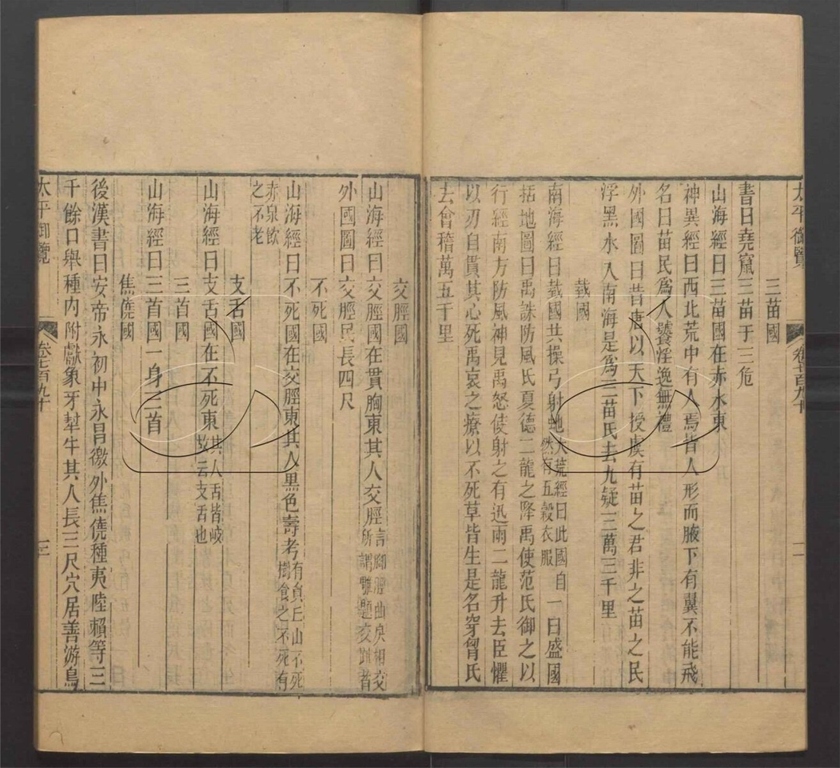 太平御覽 卷七百九十 二
三苗國
書曰堯竄三苗于三危
山海經曰三苗國在赤水東
神異經曰西北荒中有人焉皆人形而腋下有翼不能飛
名曰苗民為人饕淫逸無禮
外國圖曰昔唐以天下授虞有苗之君非之苗之民
浮黑水入南海是為三苗氏去九疑三萬三千里
臷國
南海經曰臷國其操弓射蛇大荒經曰此國自然有五穀衣服一曰盛國
括地圖曰禹誅防風氏夏德二龍之降禹使范氏御之以
行經南方防風神見禹怒使射之有迅雨二龍升去臣懼
以刃自貫其心死禹哀之療以不死草皆生是名穿胷氏
去會稽萬五千里
交脛國
山海經曰交脛國在貫胸東其人交脛言腳脛曲戾相交所謂雕題交趾者
外國圖曰交脛民長四尺
不死國
山海經曰不死國在交脛東其人黑色壽考有員丘山不死樹食之不死有
赤泉飲之不老
支舌國
山海經曰支舌國在不死東其人舌皆岐或云支舌也
三首國
山海經曰三首國一身三首
焦僥國
後漢書曰安帝永初中永昌徼外焦僥種夷陸賴等三
千餘口舉種內附獻象牙犎牛其人長三尺穴居善游鳥
太平御覽 卷七百九十 三